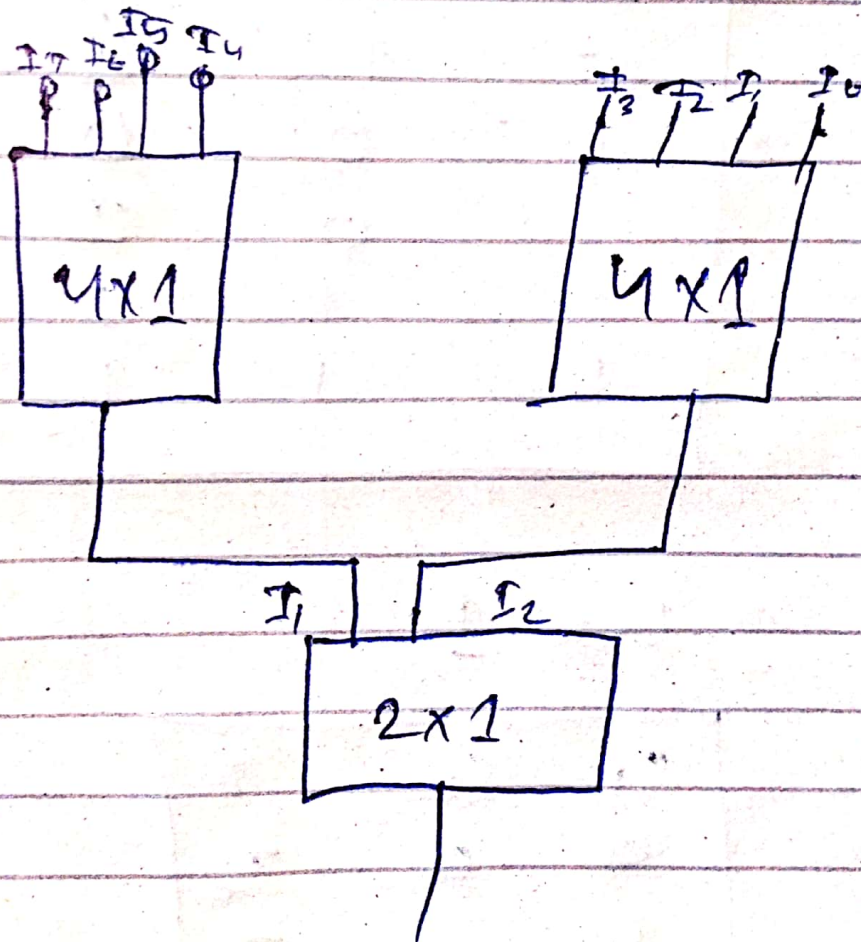 I7 I6 I5 I4
I3 I2 I1 I0
4x1
4x1
I1 I2
2x1